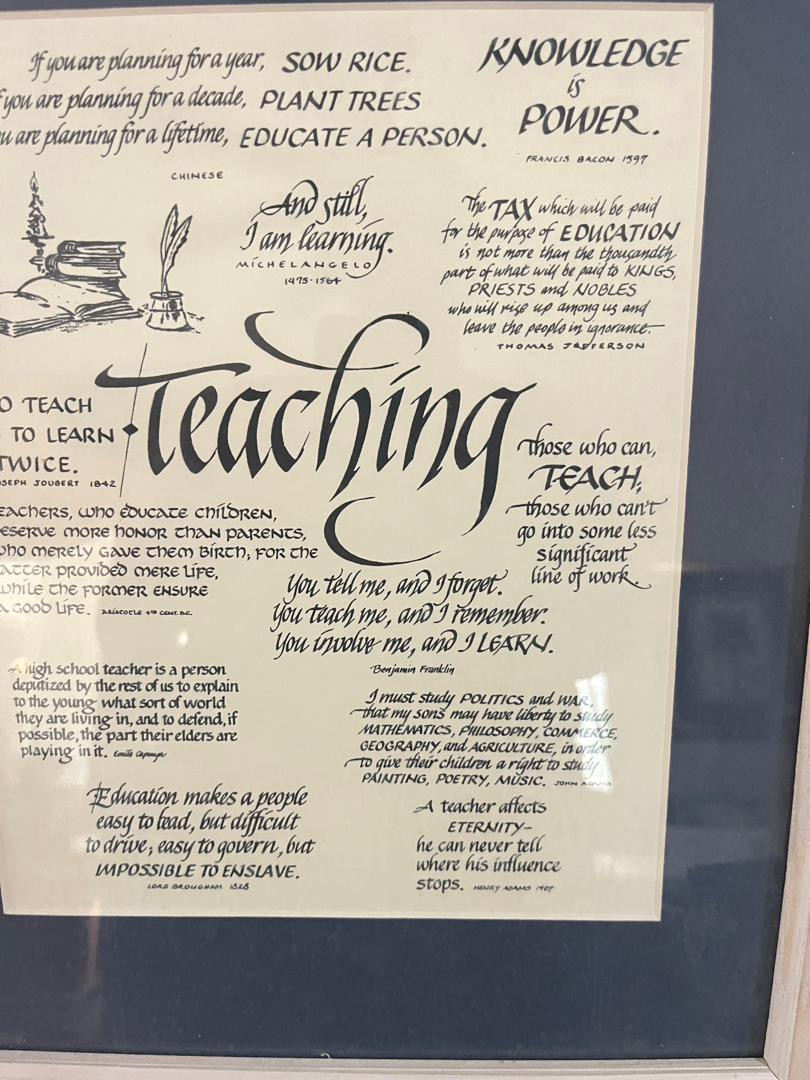 If you are planning for a year, SOW RICE.
you are planning for a decade, PLANT TREES
are planning for a lifetime, EDUCATE A PERSON.
CHINESE
KNOWLEDGE
is
POWER.
FRANCIS BACON 1597
And still,
I am learning.
MICHELANGELO
1475-1564
The TAX which will be paid
for the purpose of EDUCATION
is not more than the thousandth
part of what will be paid to KINGS,
PRIESTS and NOBLES
who will rise up among us and
leave the people in ignorance.
THOMAS JEFFERSON
Teaching
TEACH
TO LEARN
TWICE.
JOUBERT 1842
Those who can,
TEACH;
those who can't
go into some less
significant
line of work.
WHO EDUCATE CHILDREN,
MORE HONOR THAN PARENTS,
WHO MERELY GAVE THEM BIRTH; FOR THE
PROVIDED MERE LIFE,
WHILE THE FORMER ENSURE
A GOOD LIFE. ARISTOTLE 4TH CENT. B.C.
You tell me, and I forget.
You teach me, and I remember.
You involve me, and I LEARN.
Benjamin Franklin
A high school teacher is a person
deputized by the rest of us to explain
to the young what sort of world
they are living in, and to defend, if
possible, the part their elders are
playing in it. Emile
I must study POLITICS and WAR,
that my sons may have liberty to study
MATHEMATICS, PHILOSOPHY, COMMERCE,
GEOGRAPHY, and AGRICULTURE, in order
to give their children a right to study
PAINTING, POETRY, MUSIC. JOHN ADAMS
Education makes a people
easy to lead, but difficult
to drive; easy to govern, but
IMPOSSIBLE TO ENSLAVE.
LORD BROUGHAM 1828
A teacher affects
ETERNITY—
he can never tell
where his influence
stops. HENRY ADAMS 1907